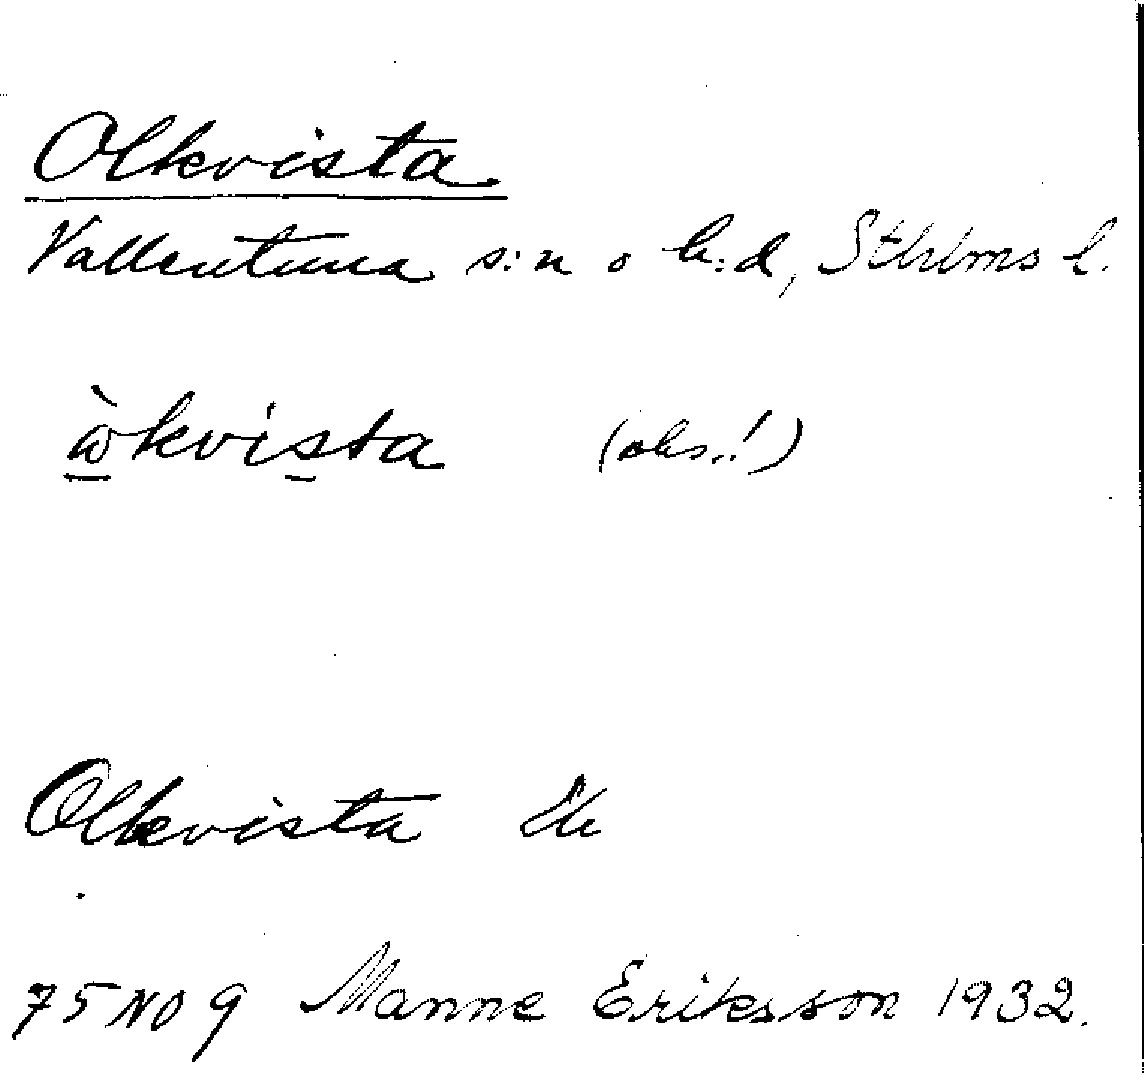 Olkvista
Vallentuna s:n o h:d, Sthlms l.
ὼkvista (obs.!)
Olkvista Ek
75 NO 9 Manne Eriksson 1932.